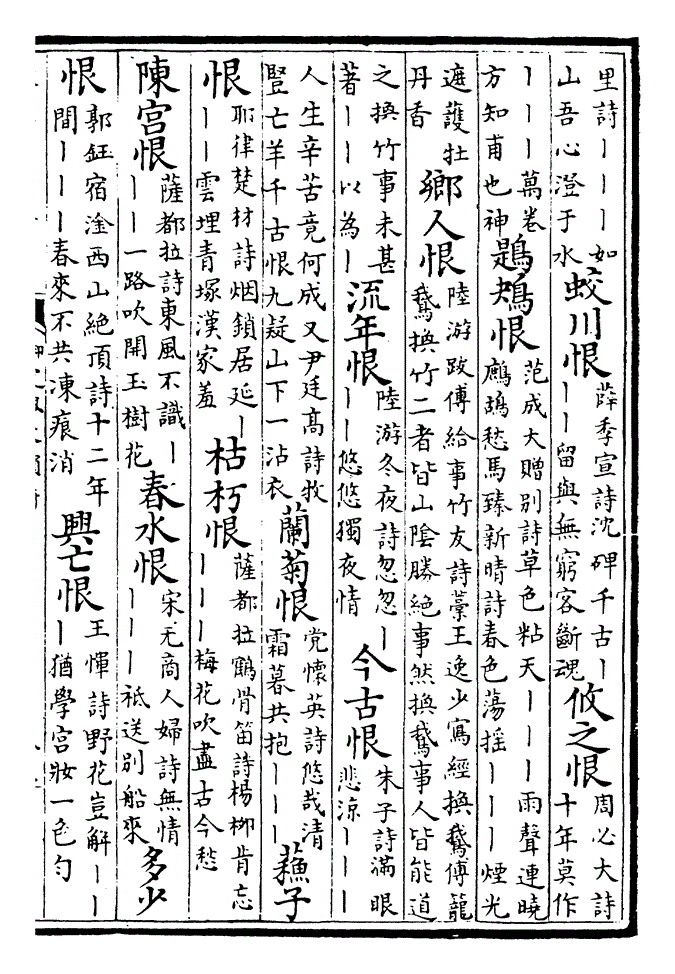 里詩丨丨丨如
山吾心澄于水
蛟川恨
薛季宣詩沈碑千古丨
丨丨留與無窮客斷魂
攸之恨
周必大詩
十年莫作
丨丨丨萬卷
方知甫也神
鶗鴂恨
范成大贈別詩草色粘天丨丨丨雨聲連曉
鷓鴣愁馬臻新晴詩春色蕩揺丨丨丨煙光
遮䕶牡
丹香
鄉人恨
陸游跋傅給事竹友詩藁王逸少寫經換鵞傅籠
鵞換竹二者皆山陰勝絶事然換鵞事人皆能道
之換竹事未甚
著丨丨以為丨
流年恨
陸游冬夜詩忽忽丨
丨丨悠悠獨夜情
今古恨
朱子詩滿眼
悲涼丨丨丨
人生辛苦竟何成又尹廷髙詩牧
豎亡羊千古恨九疑山下一沾衣
蘭菊恨
党懷英詩悠哉清
霜暮共抱丨丨丨
蘓子
恨
耶律楚材詩烟鎖居延丨
丨丨雲埋青塚漢家羞
枯朽恨
薩都拉鶴骨笛詩楊柳肯忘
丨丨丨梅花吹盡古今愁
陳宫恨
薩都拉詩東風不識丨
丨丨一路吹開玉樹花
春水恨
宋无商人婦詩無情
丨丨丨祗送别船來
多少
恨
郭鈺宿淦西山絶頂詩十二年
間丨丨丨春來不共凍痕消
興亡恨
王惲詩野花豈解丨丨
丨猶學宫妝一色勻